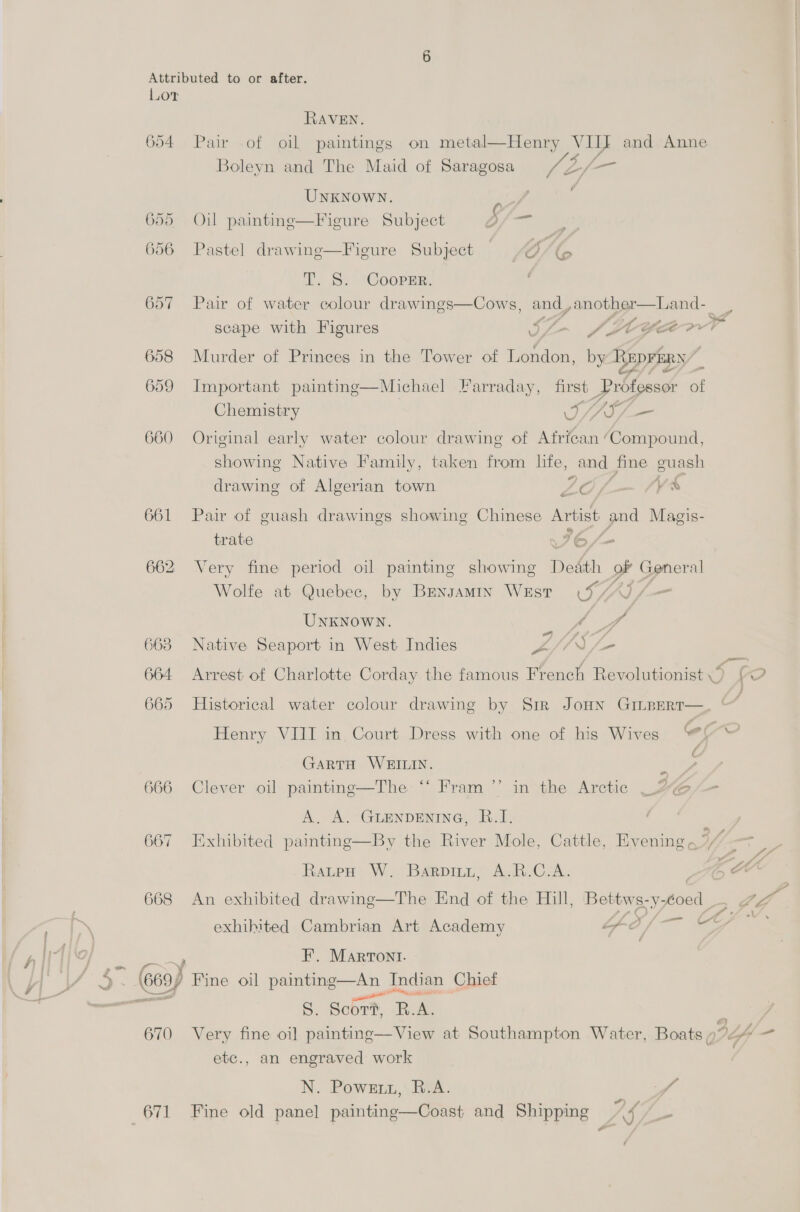 6
Attributed to or after.
Lot
RAVEN.
654 Pair of oil paintings on metal—Henry VIII and Anne
Boleyn and The Maid of Saragosa
UNKNOWN.
655 Oil painting—Figure Subject
656 Pastel drawing—Figure Subject
T. S. COOPER.
657 Pair of water colour drawings—Cows, and another—Land-
scape with Figures
658 Murder of Princes in the Tower of London, by REDFERN
659 Important painting—Michael Farraday, first Professor of
Chemistry
660 Original early water colour drawing of African Compound,
showing Native Family, taken from life, and fine guash
drawing of Algerian town
661 Pair of guash drawings showing Chinese Artist and Magis-
trate
662 Very fine period oil painting showing Death of General
Wolfe at Quebec, by BENJAMIN WEST
UNKNOWN.
663 Native Seaport in West Indies
664 Arrest of Charlotte Corday the famous French Revolutionist
665 Historical water colour drawing by SIR JOHN GILBERT—
Henry VIII in Court Dress with one of his Wives
GARTH WEILIN.
666 Clever oil painting—The “ Fram ” in the Arctic
A. A. GLENDENING, R.I.
667 Exhibited painting—By the River Mole, Cattle, Evening
RALPH W. BARDILL, A.R.C.A.
668 An exhibited drawing—The End of the Hill, Bettws-y-coed
exhibited Cambrian Art Academy
F. MARTONI.
669 Fine oil painting—An Indian Chief
S. SCOTT, R.A.
670 Very fine oil painting—View at Southampton Water, Boats
etc., an engraved work
N. POWELL, R.A.
671 Fine old panel painting—Coast and Shipping